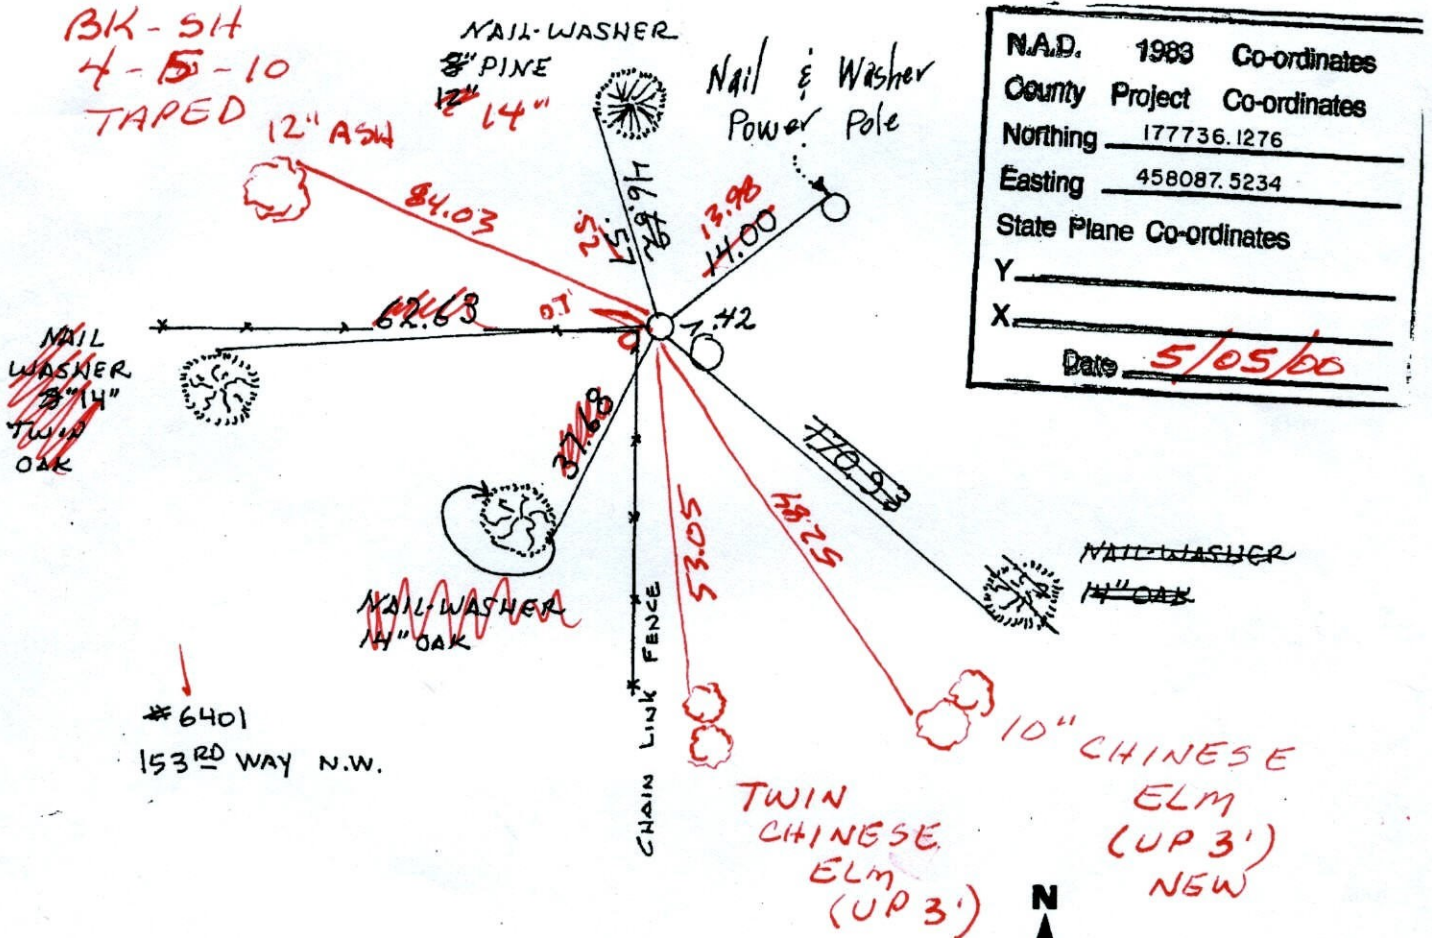 BK-SH
4-5-10
TAPED
NAIL-WASHER
8" PINE
12" 14"
Nail & Washer
Power Pole
12" ASH
84.03
46.82
.57
.52
13.98
14.00
N.A.D. 1983 Co-ordinates
County Project Co-ordinates
Northing 177736.1276
Easting 458087.5234
State Plane Co-ordinates
Y
X
Date 5/05/00
62.63
0.7'
.42
NAIL
WASHER
8" 14"
TWIN
OAK
37.68
170.93
53.05
52.84
NAIL-WASHER
14" OAK
NAIL-WASHER
14" OAK
CHAIN LINK FENCE
#6401
153RD WAY N.W.
TWIN
CHINESE
ELM
(UP 3')
10" CHINESE
ELM
(UP 3')
NEW
N